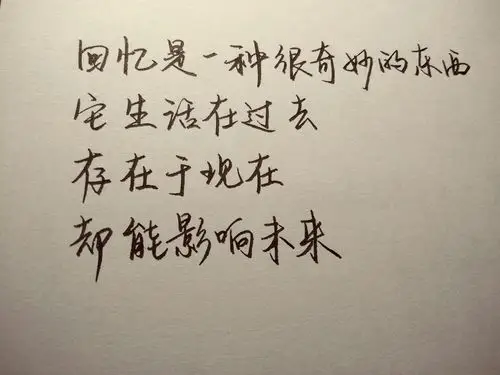 回忆是一种很奇妙的东西
它生活在过去
存在于现在
却能影响未来